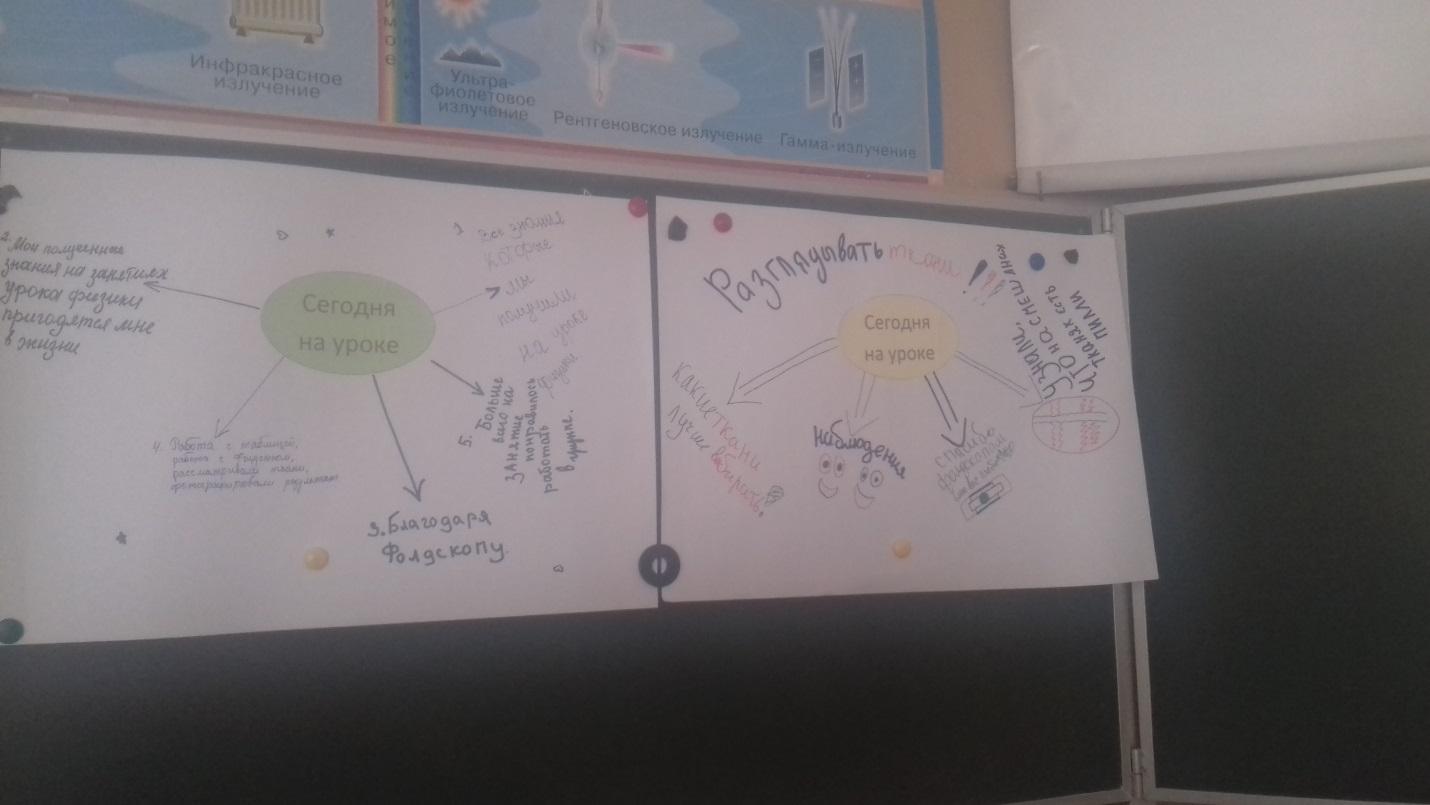 Инфракрасное
излучение
Ультра-
фиолетовое
излучение
Рентгеновское излучение
Гамма-излучение
Сегодня
на уроке
1
Все знания
которые
мы
получили
на уроке
физики
2. Мои полученные
знания на занятиях
урока физики
пригодятся мне
в жизни
3. Благодаря
Фолдскопу.
4. Работа с таблицей,
работа с
рассматривали ткани,
фотографировали результат
5. Больше
всего на
занятие
понравилось
работать
в группе.
Сегодня
на уроке
Разглядывать ткани !!!
какие ткани
лучше выбирать.
наблюдения
спасибо
фолдскопам
узнали,
что на смешаных
тканях есть
пилли